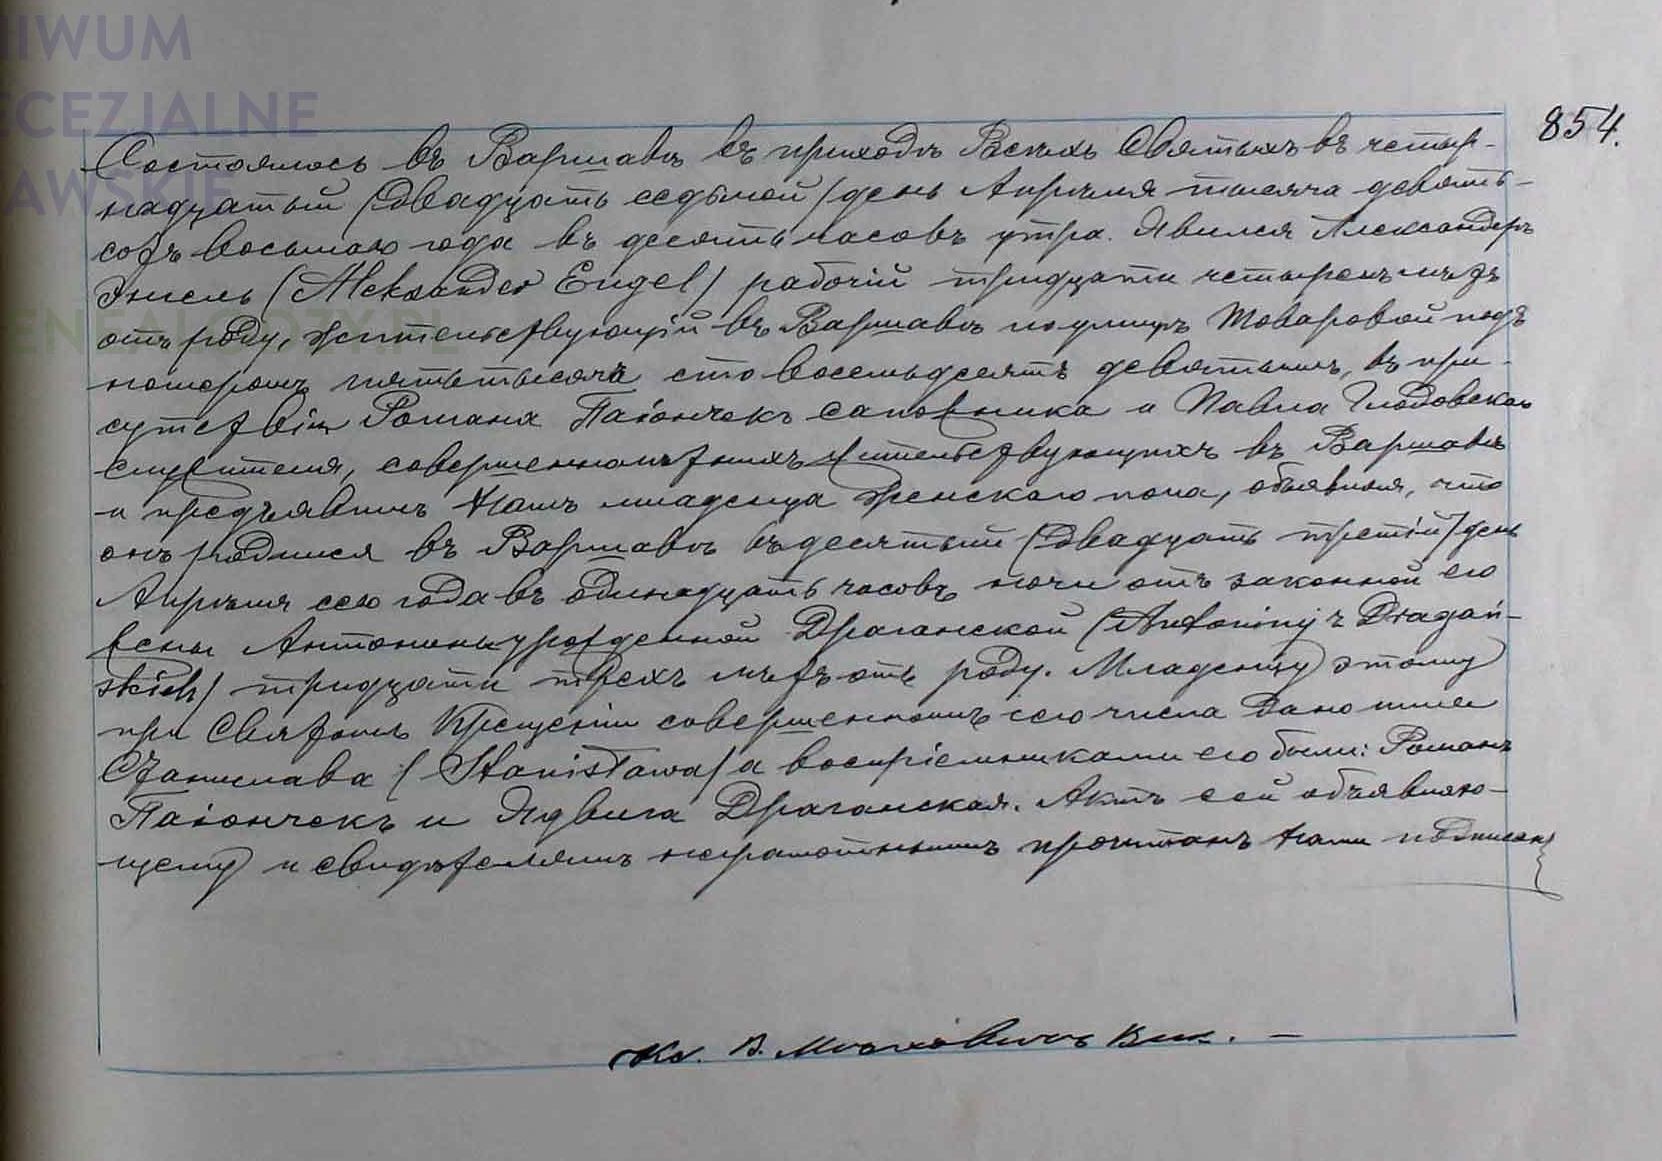 HIWUM
ECEZJALNE
AWSKIE
ENEALODZY.PL
854.
Состоялось въ Варшавѣ въ приходѣ Всѣхъ Святыхъ въ четыр-
надцатый (двадцать седьмой) день Апрѣля тысяча девять-
сотъ восьмаго года въ десять часовъ утра. Явился Александръ
Энгель (Aleksander Engel) рабочій тридцати четырехъ лѣтъ
отъ роду, жительствующій въ Варшавѣ по улицѣ Товаровой подъ
номеромъ пять тысячъ сто восемьдесятъ девятымъ, въ при-
сутствіи Романа Паіончекъ сапожника и Павла Глодовскаго
служителя, совершеннолѣтнихъ жительствующихъ въ Варшавѣ
и предъявилъ Намъ младенца женскаго пола, объявляя, что
онъ родился въ Варшавѣ въ десятый (двадцать третій) день
Апрѣля сего года въ одинадцать часовъ ночи отъ законной его
жены Антонины урожденной Драганской (Antoniny z Dragań-
skich) тридцати трехъ лѣтъ отъ роду. Младенцу этому
при Святомъ Крещеніи совершенномъ сего числа дано имя
Станислава (Stanisława) а воспріемниками его были: Романъ
Паіончекъ и Ядвига Драганская. Актъ сей объявляю-
щему и свидѣтелямъ неграмотнымъ прочитанъ Нами подписанъ
Кс. В. Вик. —